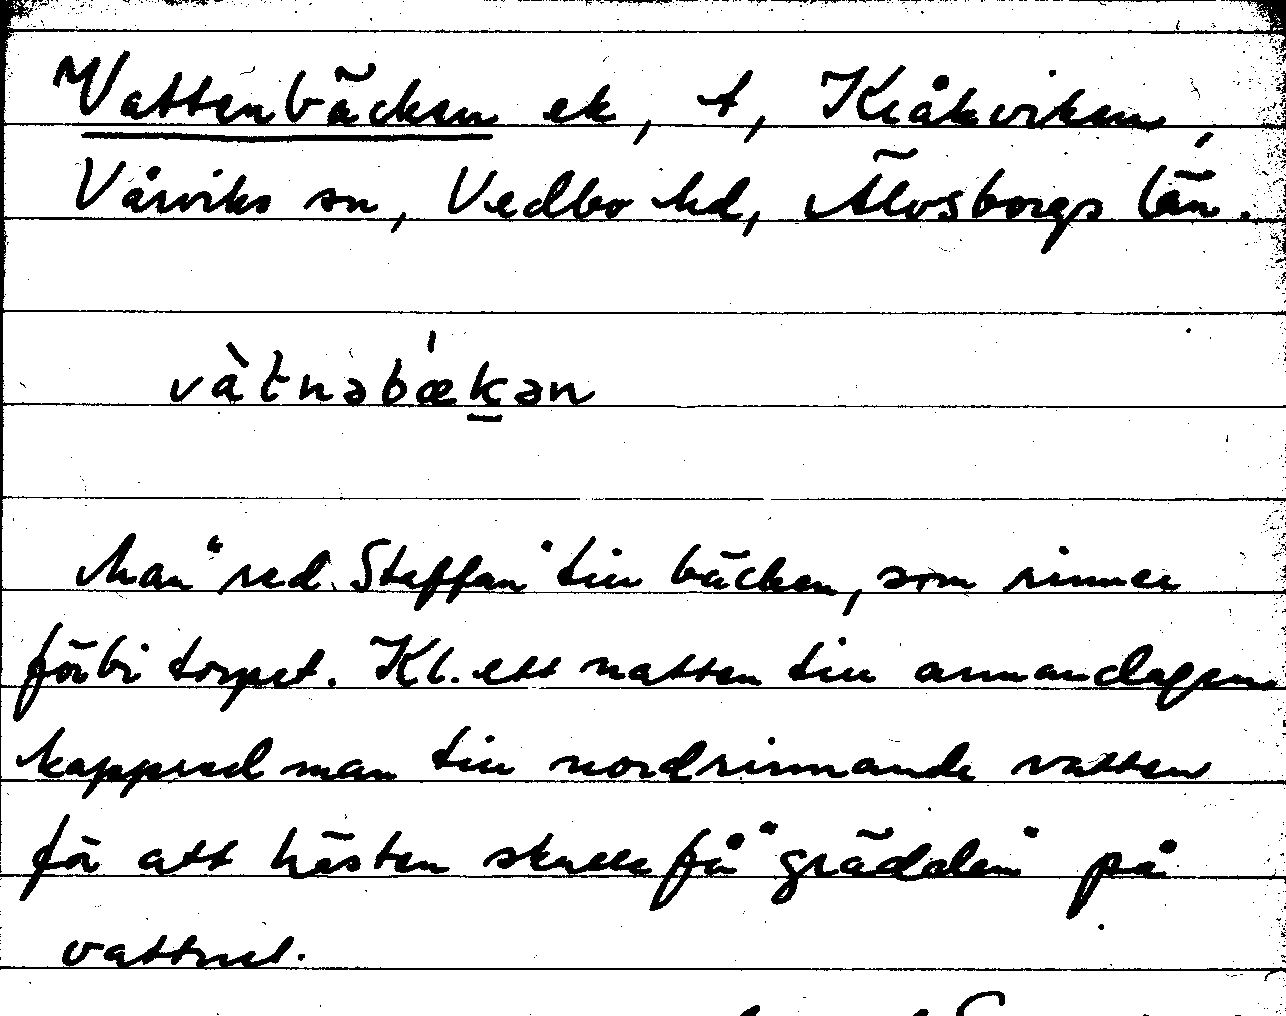 Vattenbäcken ek, t, Kråkviken,
Vårviks sn, Vedbo hd, Älvsborgs län.
vàtnəbǽk̲ən
Man "red Staffan" till bäcken, som rinner
förbi torpet. Kl. ett natten till annandagen
kappred man till nordrinnande vatten
för att hästen skulle få "grädden" på
vattnet.